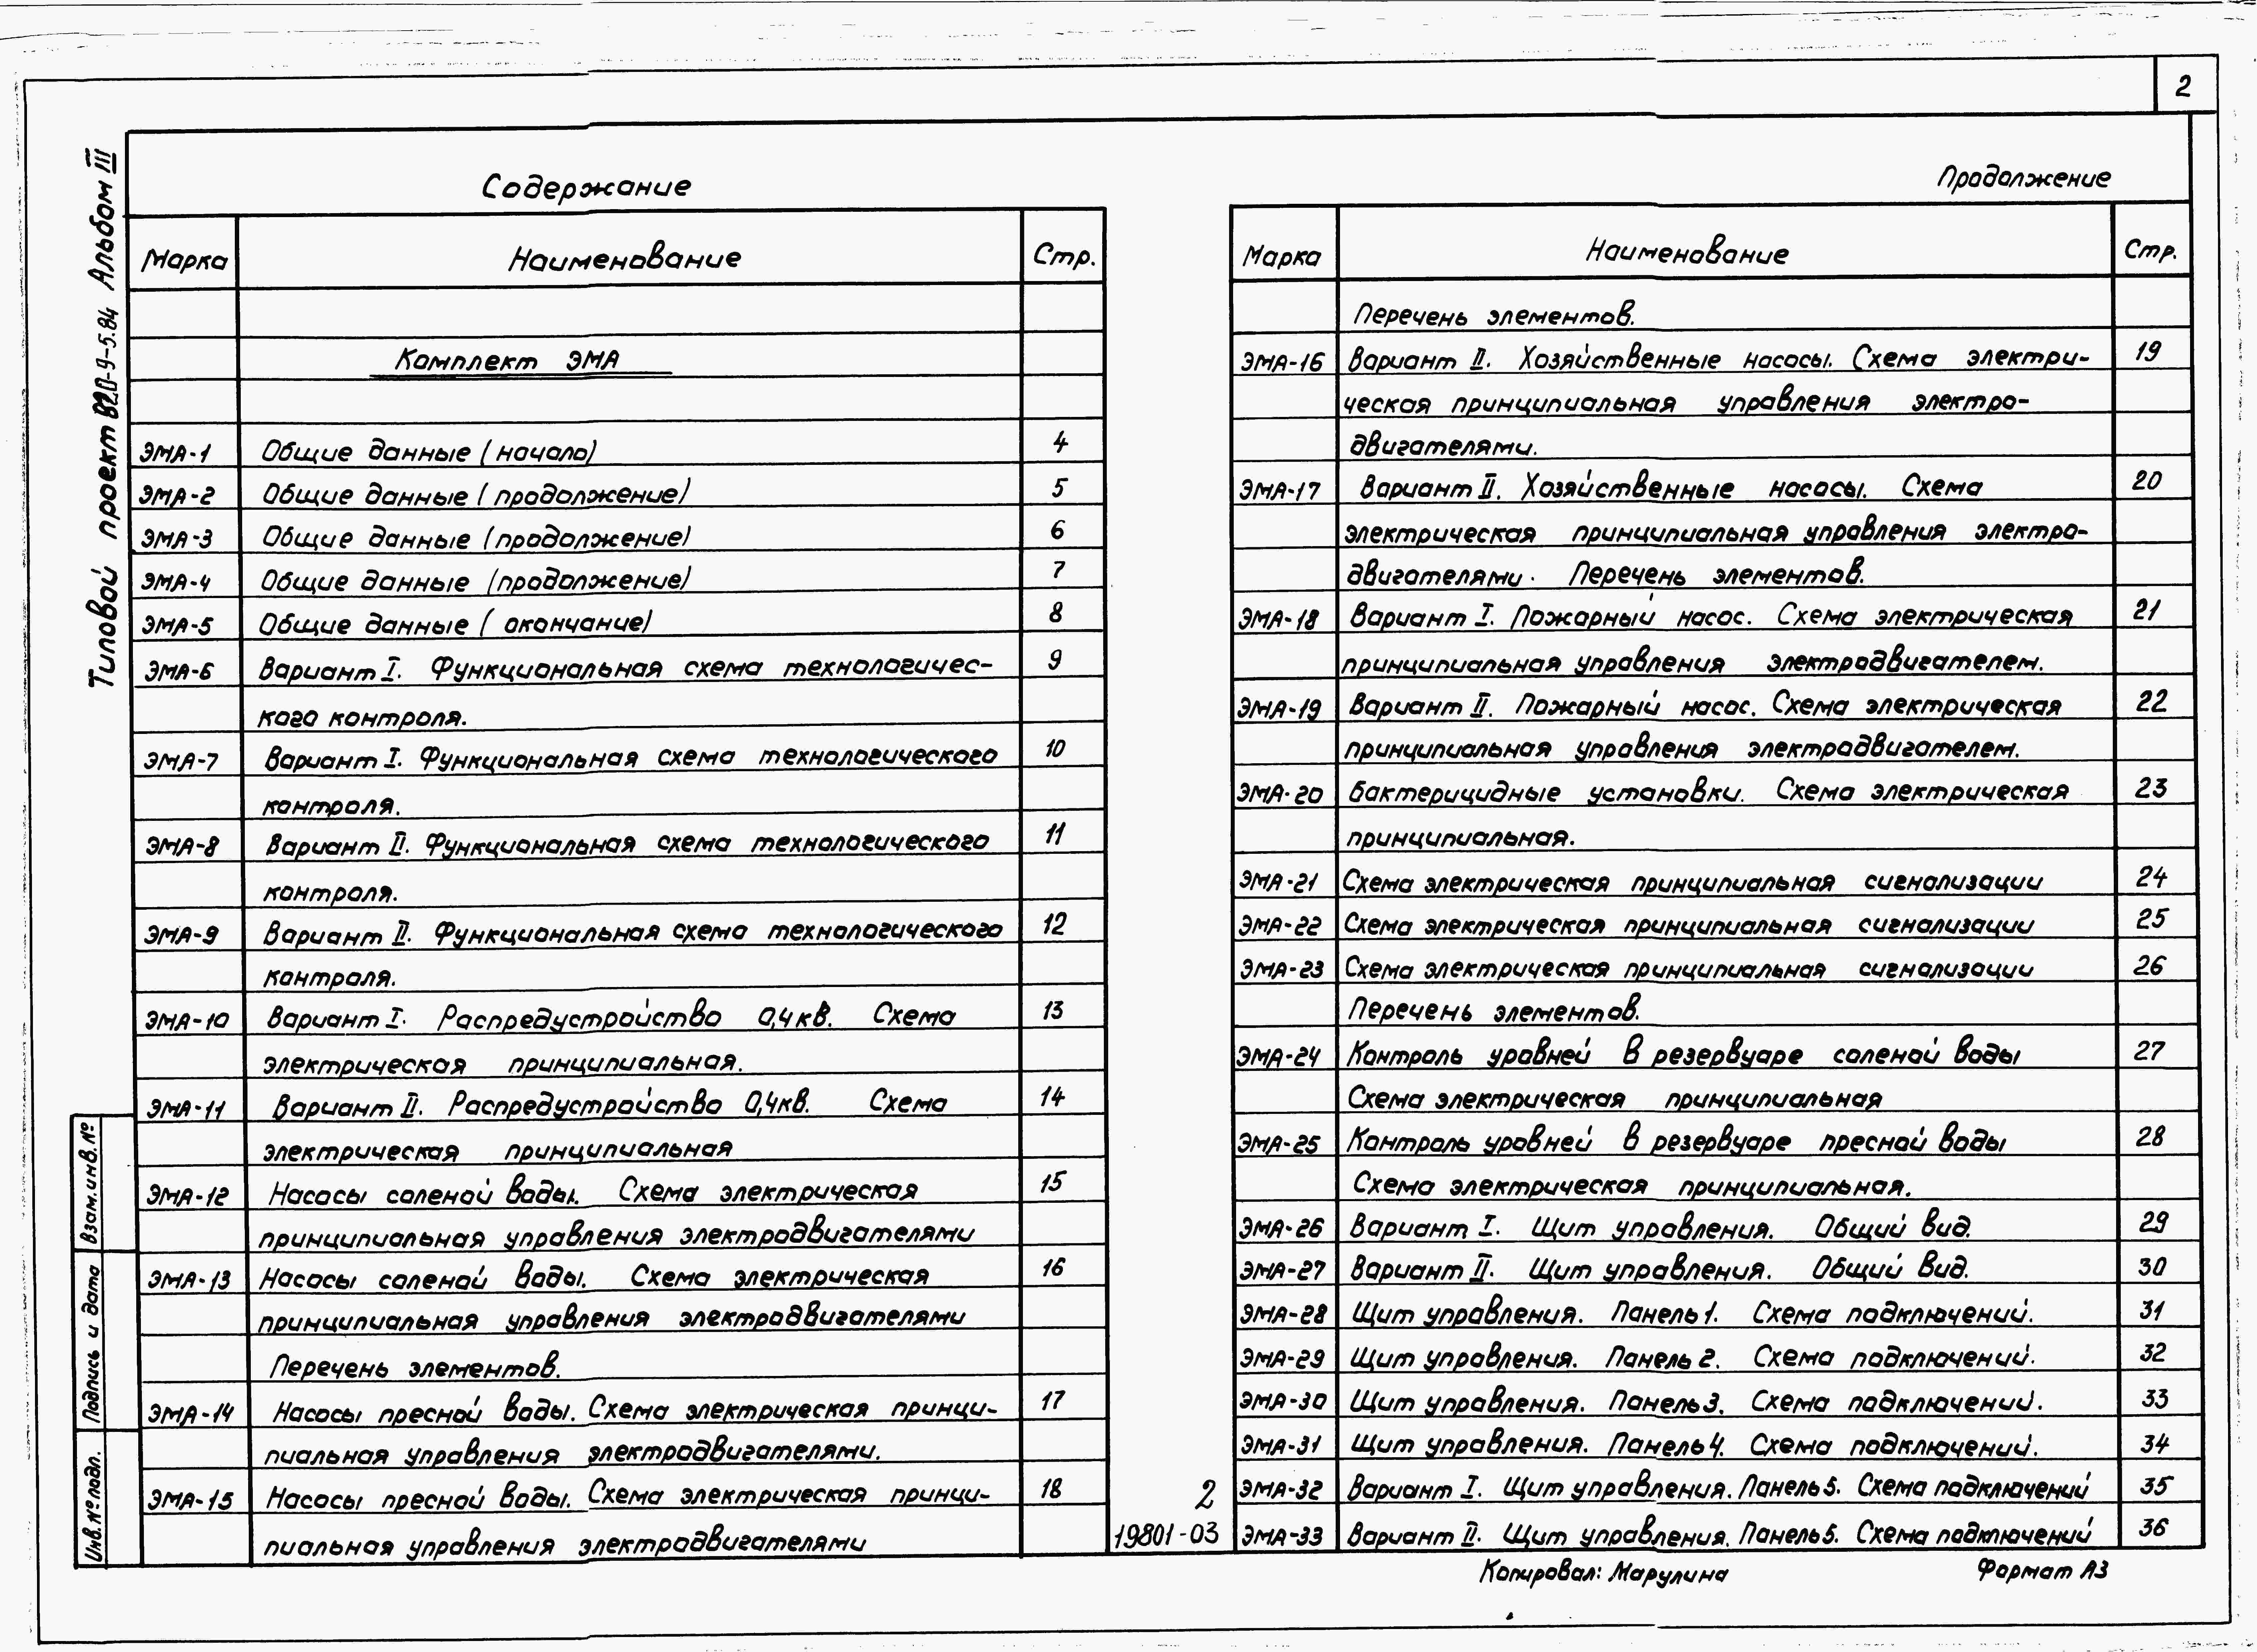 2
Типовой проект 820-9-5.84 Альбом III
Содержание
Марка Наименование Стр.
Комплект ЭМА
ЭМА-1 Общие данные (начало) 4
ЭМА-2 Общие данные (продолжение) 5
ЭМА-3 Общие данные (продолжение) 6
ЭМА-4 Общие данные (продолжение) 7
ЭМА-5 Общие данные (окончание) 8
ЭМА-6 Вариант I. Функциональная схема технологичес- 9
кого контроля.
ЭМА-7 Вариант I. Функциональная схема технологического 10
контроля.
ЭМА-8 Вариант II. Функциональная схема технологического 11
контроля.
ЭМА-9 Вариант II. Функциональная схема технологического 12
контроля.
ЭМА-10 Вариант I. Распредустройство 0,4кв. Схема 13
электрическая принципиальная.
ЭМА-11 Вариант II. Распредустройство 0,4кв. Схема 14
электрическая принципиальная
ЭМА-12 Насосы соленой воды. Схема электрическая 15
принципиальная управления электродвигателями
ЭМА-13 Насосы соленой воды. Схема электрическая 16
принципиальная управления электродвигателями
Перечень элементов.
ЭМА-14 Насосы пресной воды. Схема электрическая принци- 17
пиальная управления электродвигателями.
ЭМА-15 Насосы пресной воды. Схема электрическая принци- 18
пиальная управления электродвигателями
Продолжение
Марка Наименование Стр.
Перечень элементов.
ЭМА-16 Вариант II. Хозяйственные насосы. Схема электри- 19
ческая принципиальная управления электро-
двигателями.
ЭМА-17 Вариант II. Хозяйственные насосы. Схема 20
электрическая принципиальная управления электро-
двигателями. Перечень элементов.
ЭМА-18 Вариант I. Пожарный насос. Схема электрическая 21
принципиальная управления электродвигателем.
ЭМА-19 Вариант II. Пожарный насос. Схема электрическая 22
принципиальная управления электродвигателем.
ЭМА-20 Бактерицидные установки. Схема электрическая 23
принципиальная.
ЭМА-21 Схема электрическая принципиальная сигнализации 24
ЭМА-22 Схема электрическая принципиальная сигнализации 25
ЭМА-23 Схема электрическая принципиальная сигнализации 26
Перечень элементов.
ЭМА-24 Контроль уровней в резервуаре соленой воды 27
Схема электрическая принципиальная
ЭМА-25 Контроль уровней в резервуаре пресной воды 28
Схема электрическая принципиальная.
ЭМА-26 Вариант I. Щит управления. Общий вид. 29
ЭМА-27 Вариант II. Щит управления. Общий вид. 30
ЭМА-28 Щит управления. Панель 1. Схема подключений. 31
ЭМА-29 Щит управления. Панель 2. Схема подключений. 32
ЭМА-30 Щит управления. Панель 3. Схема подключений. 33
ЭМА-31 Щит управления. Панель 4. Схема подключений. 34
ЭМА-32 Вариант I. Щит управления. Панель 5. Схема подключений 35
ЭМА-33 Вариант II. Щит управления. Панель 5. Схема подключений 36
2
19801-03
Взам. инв. №
Подпись и дата
Инв. № подл.
Копировал: Марулина Формат А3